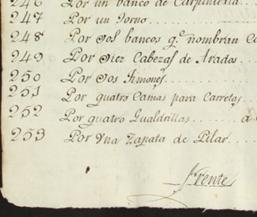 246 Por un banco de Carpinteria
247 Por un Torno
248 Por dos bancos q.e nombran
249 Por Diez Cabezas de Arados
250 Por dos Timones
251 Por quatro Camas para Carretas
252 Por quatro Gualdillas a
253 Por Una Zapata de Pilar
Frente